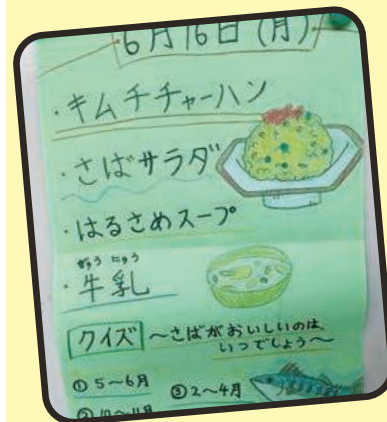 6月16日(月)
・キムチチャーハン
・さばサラダ
・はるさめスープ
ぎゅう にゅう
・牛乳
クイズ ～さばがおいしいのは、
いつでしょう～
① 5～6月 ③ 2～4月
② 10～11月